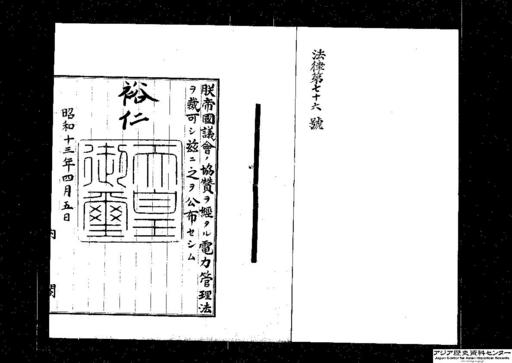 法律第七十六號
朕帝國議會ノ協賛ヲ經タル電力管理法
ヲ裁可シ茲ニ之ヲ公布セシム
裕仁
天皇
御璽
昭和十三年四月五日
内閣
アジア歴史資料センター
Japan Center for Asian Historical Records